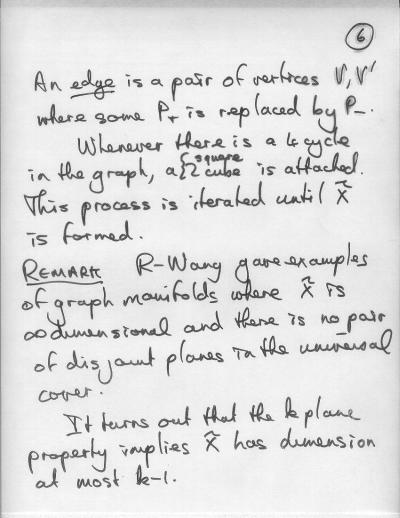 6
An edge is a pair of vertices V, V'
where some P₊ is replaced by P₋.
Whenever there is a 4 cycle
in the graph, a { square
2 cube is attached.
This process is iterated until X̃
is formed.
REMARK R-Wang gave examples
of graph manifolds where X̃ is
∞ dimensional and there is no pair
of disjoint planes in the universal
cover.
It turns out that the k plane
property implies X̃ has dimension
at most k-1.